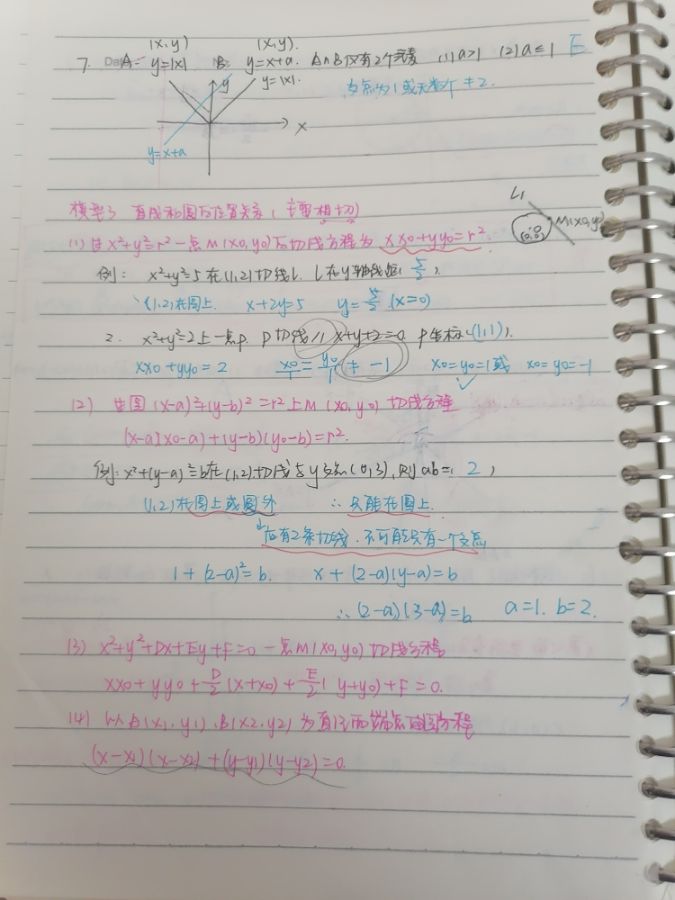 (x,y) (x,y).
7. A= y=|x| B: y=x+a. A∩B仅有2个元素 (1)a>1 (2)a≤1 E
y y=|x|. 交点为1或无数个≠2.
x
y=x+a
模型3 直线和圆的位置关系(主要相切)
L1
M(x0,y0)
(0,0)
(1)过x²+y²=r²一点M(x0,y0)的切线方程为 xx0+yy0=r².
例: x²+y²=5在(1,2)切线L. L在y轴截距(5/2),
∵(1,2)在圆上. x+2y=5 y=5/2 (x=0)
2. x²+y²=2上一点P. P切线∥x+y+2=0. P坐标(1,1),
xx0+yy0=2 x0/1=y0/1≠-1 x0=y0=1或 x0=y0=-1
(2) 过圆(x-a)²+(y-b)²=r²上M(x0,y0)切线方程
(x-a)(x0-a)+(y-b)(y0-b)=r².
例: x²+(y-a)²=b在(1,2)切线与y交点(0,3),则ab=( 2 ,
(1,2)在圆上或圆外 ∴只能在圆上.
后有2条切线.不可能只有一个交点
1+(2-a)²=b. x+(2-a)(y-a)=b
∴(2-a)(3-a)=b a=1. b=2.
(3) x²+y²+Dx+Ey+F=0一点M(x0,y0)切线方程
xx0+yy0+D/2(x+x0)+E/2(y+y0)+F=0.
(4) 以A(x1,y1).B(x2,y2)为直径两端点的圆方程
(x-x1)(x-x2)+(y-y1)(y-y2)=0.